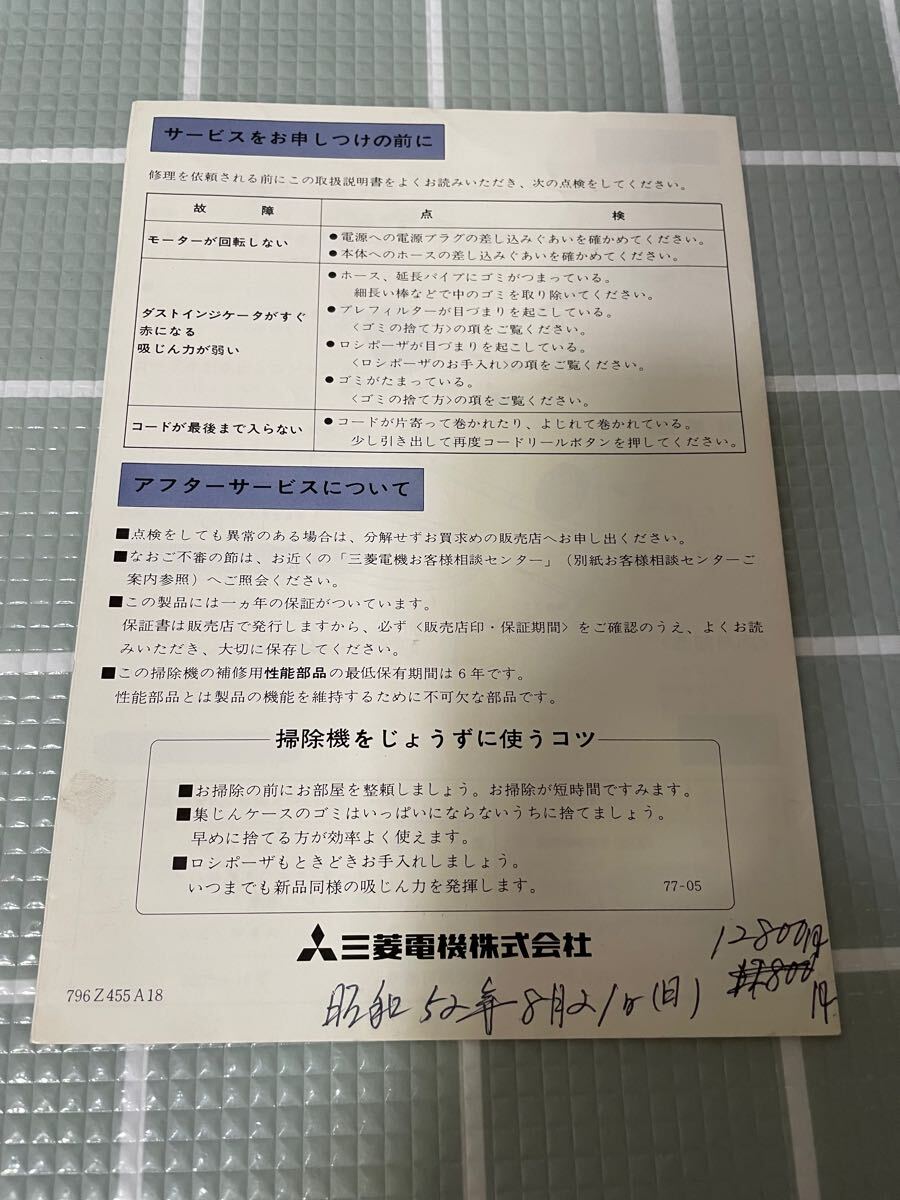 サービスをお申しつけの前に
修理を依頼される前にこの取扱説明書をよくお読みいただき、次の点検をしてください。
故 障 点 検
モーターが回転しない
●電源への電源プラグの差し込みぐあいを確かめてください。
●本体へのホースの差し込みぐあいを確かめてください。
ダストインジケータがすぐ
赤になる
吸じん力が弱い
●ホース、延長パイプにゴミがつまっている。
細長い棒などで中のゴミを取り除いてください。
●プレフィルターが目づまりを起こしている。
〈ゴミの捨て方〉の項をご覧ください。
●ロシポーザが目づまりを起こしている。
〈ロシポーザのお手入れ〉の項をご覧ください。
●ゴミがたまっている。
〈ゴミの捨て方〉の項をご覧ください。
コードが最後まで入らない
●コードが片寄って巻かれたり、よじれて巻かれている。
少し引き出して再度コードリールボタンを押してください。
アフターサービスについて
■点検をしても異常のある場合は、分解せずお買求めの販売店へお申し出ください。
■なおご不審の節は、お近くの「三菱電機お客様相談センター」（別紙お客様相談センターご
案内参照）へご照会ください。
■この製品には一ヵ年の保証がついています。
保証書は販売店で発行しますから、必ず〈販売店印・保証期間〉をご確認のうえ、よくお読
みいただき、大切に保存してください。
■この掃除機の補修用性能部品の最低保有期間は6年です。
性能部品とは製品の機能を維持するために不可欠な部品です。
掃除機をじょうずに使うコツ
■お掃除の前にお部屋を整頼しましょう。お掃除が短時間ですみます。
■集じんケースのゴミはいっぱいにならないうちに捨てましょう。
早めに捨てる方が効率よく使えます。
■ロシポーザもときどきお手入れしましょう。
いつまでも新品同様の吸じん力を発揮します。
77-05
三菱電機株式会社
12800円
円
796Z455A18
昭和52年8月21日(日)